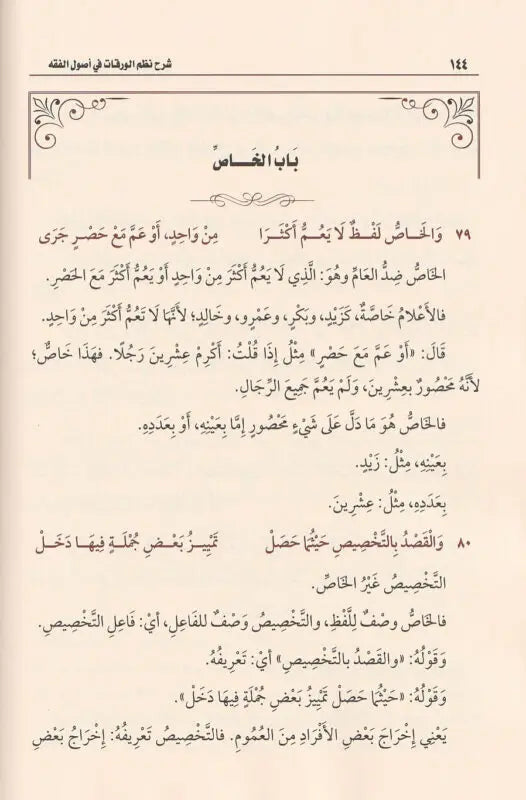 ١٤٤ شرح نظم الورقات في أصول الفقه
بَابُ الخَـاصِّ
٧٩ وَالْخَاصُّ لَفْظٌ لَا يَعُمُّ أَكْثَرَا مِنْ وَاحِدٍ، أَوْ عَمَّ مَعْ حَصْرٍ جَرَى
الخَاصُّ ضِدُّ العَامِّ وهُوَ: الَّذِي لَا يَعُمُّ أَكْثَرَ مِنْ وَاحِدٍ أَوْ يَعُمُّ أَكْثَرَ مَعَ الحَصْرِ.
فالأَعْلَامُ خَاصَّةٌ، كَزَيْدٍ، وبَكْرٍ، وعَمْرٍو، وخَالِدٍ؛ لأَنَّهَا لَا تَعُمُّ أَكْثَرَ مِنْ وَاحِدٍ.
قَالَ: «أَوْ عَمَّ مَعْ حَصْرٍ» مِثْلُ إِذَا قُلْتُ: أَكْرِمْ عِشْرِينَ رَجُلًا. فهَذَا خَاصٌّ؛
لأَنَّهُ مَحْصُورٌ بعِشْرِينَ، وَلَمْ يَعُمَّ جَمِيعَ الرِّجَالِ.
فالخَاصُّ هُوَ مَا دَلَّ عَلَى شَيْءٍ مَحْصُورٍ إمَّا بِعَيْنِهِ، أَوْ بِعَدَدِهِ.
بِعَيْنِهِ، مِثْلُ: زَيْدٍ.
بِعَدَدِهِ، مِثْلُ: عِشْرِينَ.
٨٠ وَالْقَصْدُ بِالتَّخْصِيصِ حَيْثُمَا حَصَلْ تَمْيِيزُ بَعْضِ جُمْلَةٍ فِيهَا دَخَلْ
التَّخْصِيصُ غَيْرُ الخَاصِّ.
فالخَاصُّ وصْفٌ لِلَّفْظِ، والتَّخْصِيصُ وَصْفٌ للفَاعِلِ، أيْ: فَاعِلِ التَّخْصِيصِ.
وَقَوْلُهُ: «والقَصْدُ بالتَّخْصِيصِ» أيْ: تَعْرِيفُهُ.
وَقَوْلُهُ: «حَيْثُمَا حَصَلْ تَمْيِيزُ بَعْضِ جُمْلَةٍ فِيهَا دَخَلْ».
يَعْنِي إِخْرَاجَ بَعْضِ الأَفْرَادِ مِنَ العُمُومِ. فالتَّخْصِيصُ تَعْرِيفُهُ: إِخْرَاجُ بَعْضِ